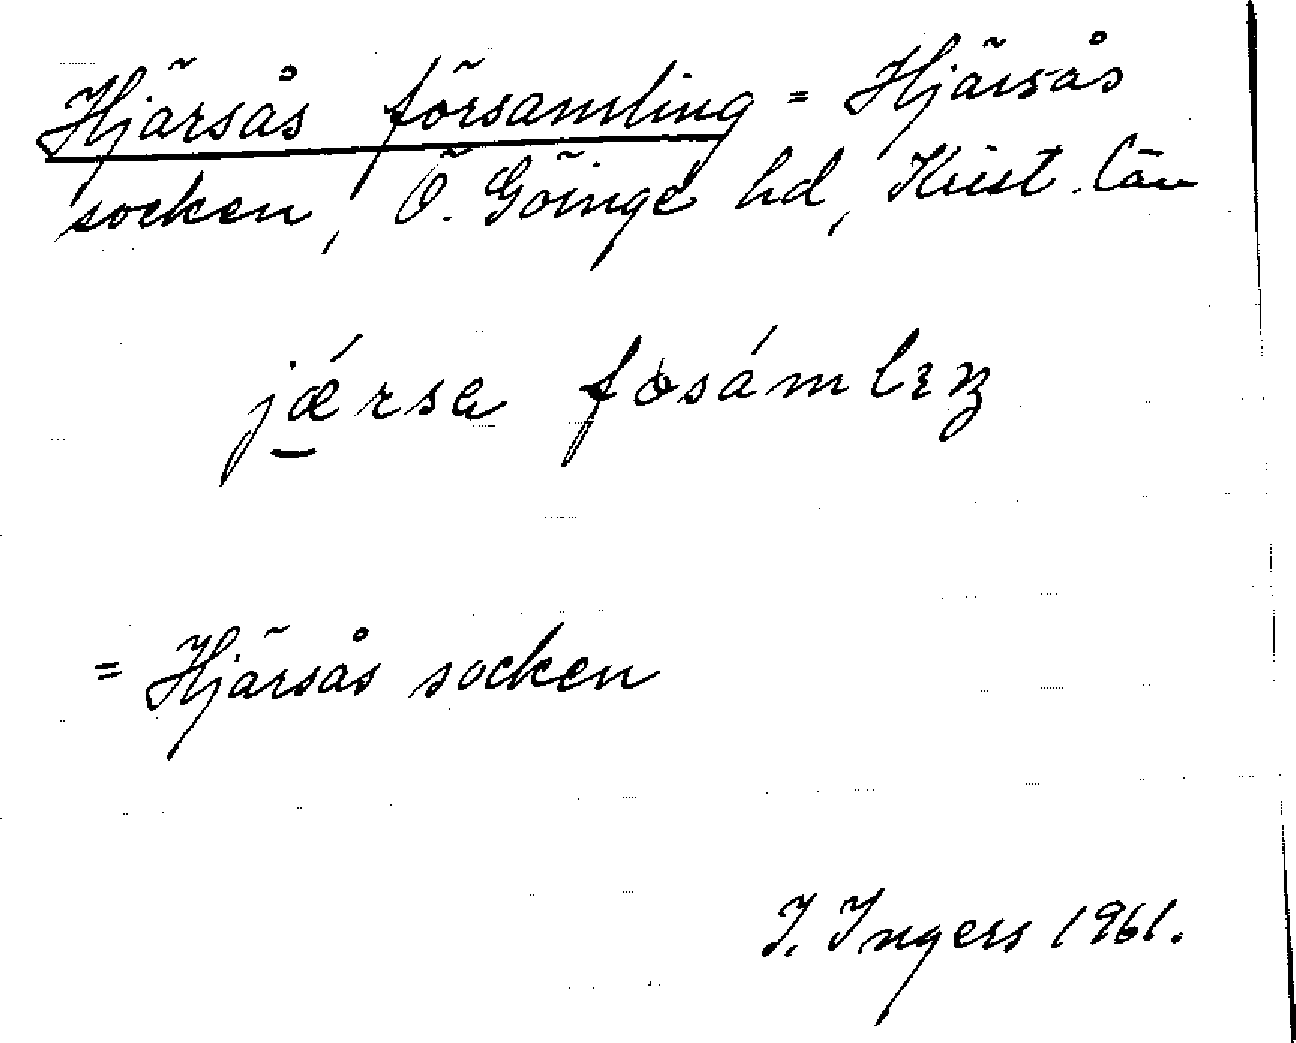 Hjärsås församling = Hjärsås
socken, Ö. Göinge hd, Krist. län
jǽ̱rsa fosámlıŋ
= Hjärsås socken
I. Ingers 1961.